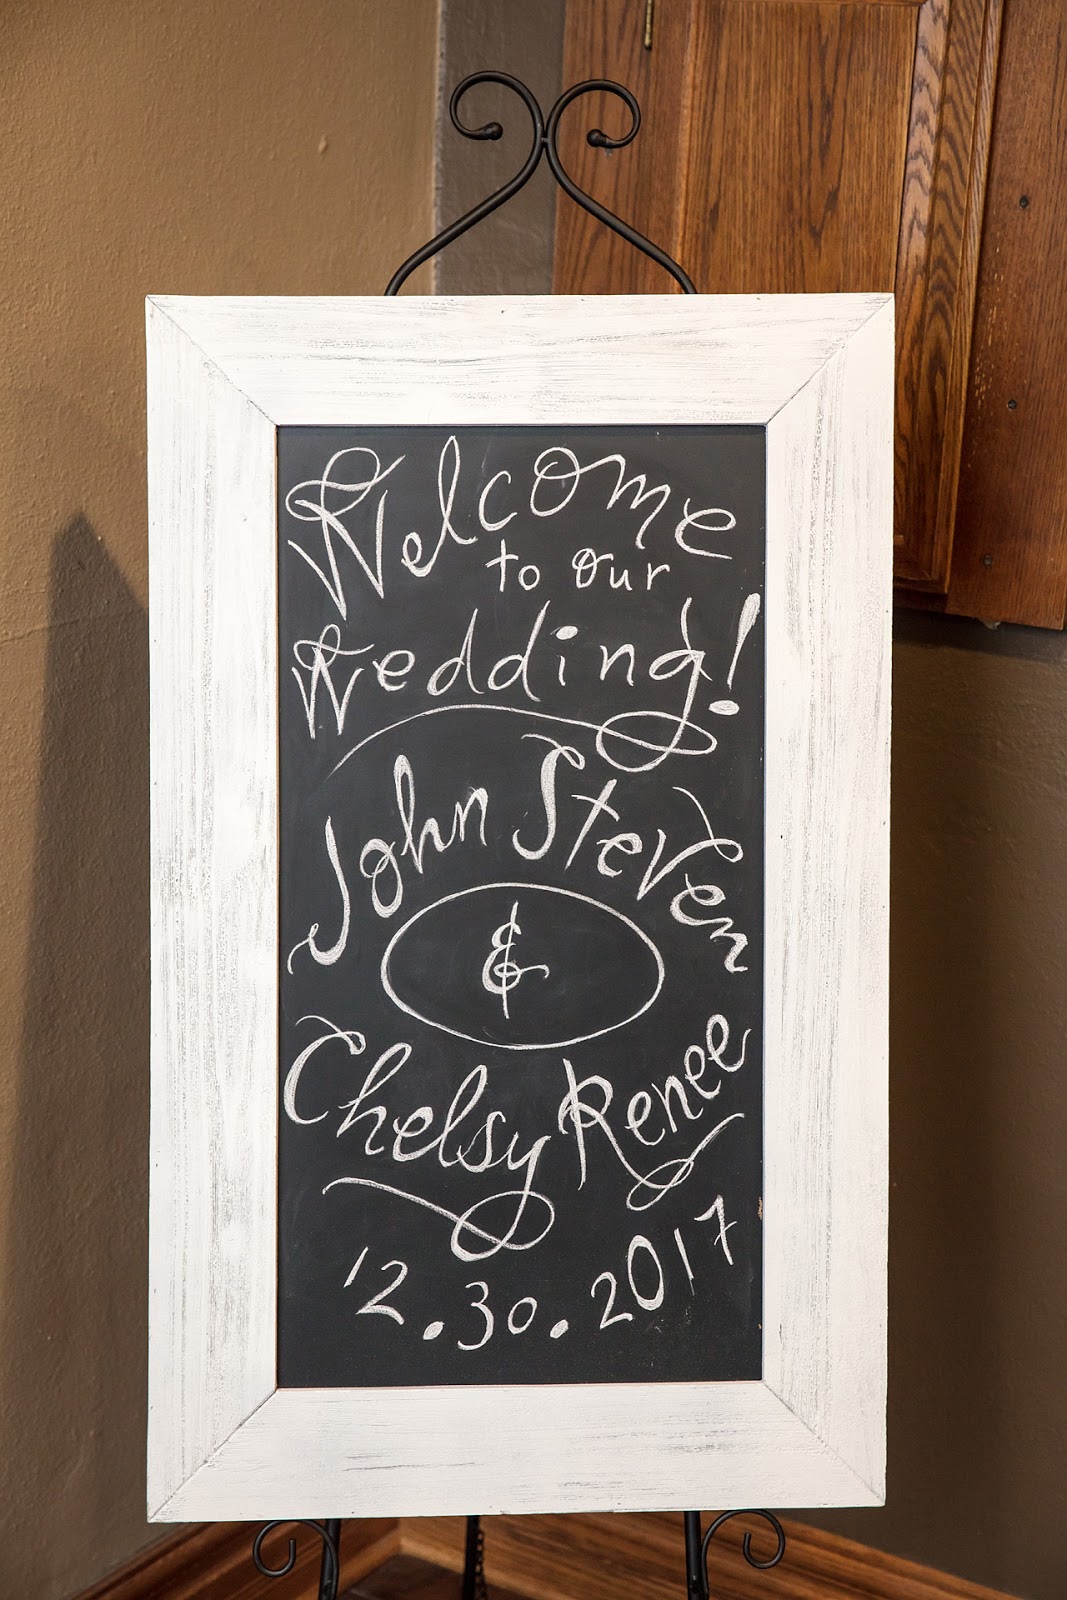 Welcome
to our
Wedding!
John Steven
&
Chelsy Renee
12.30.2017